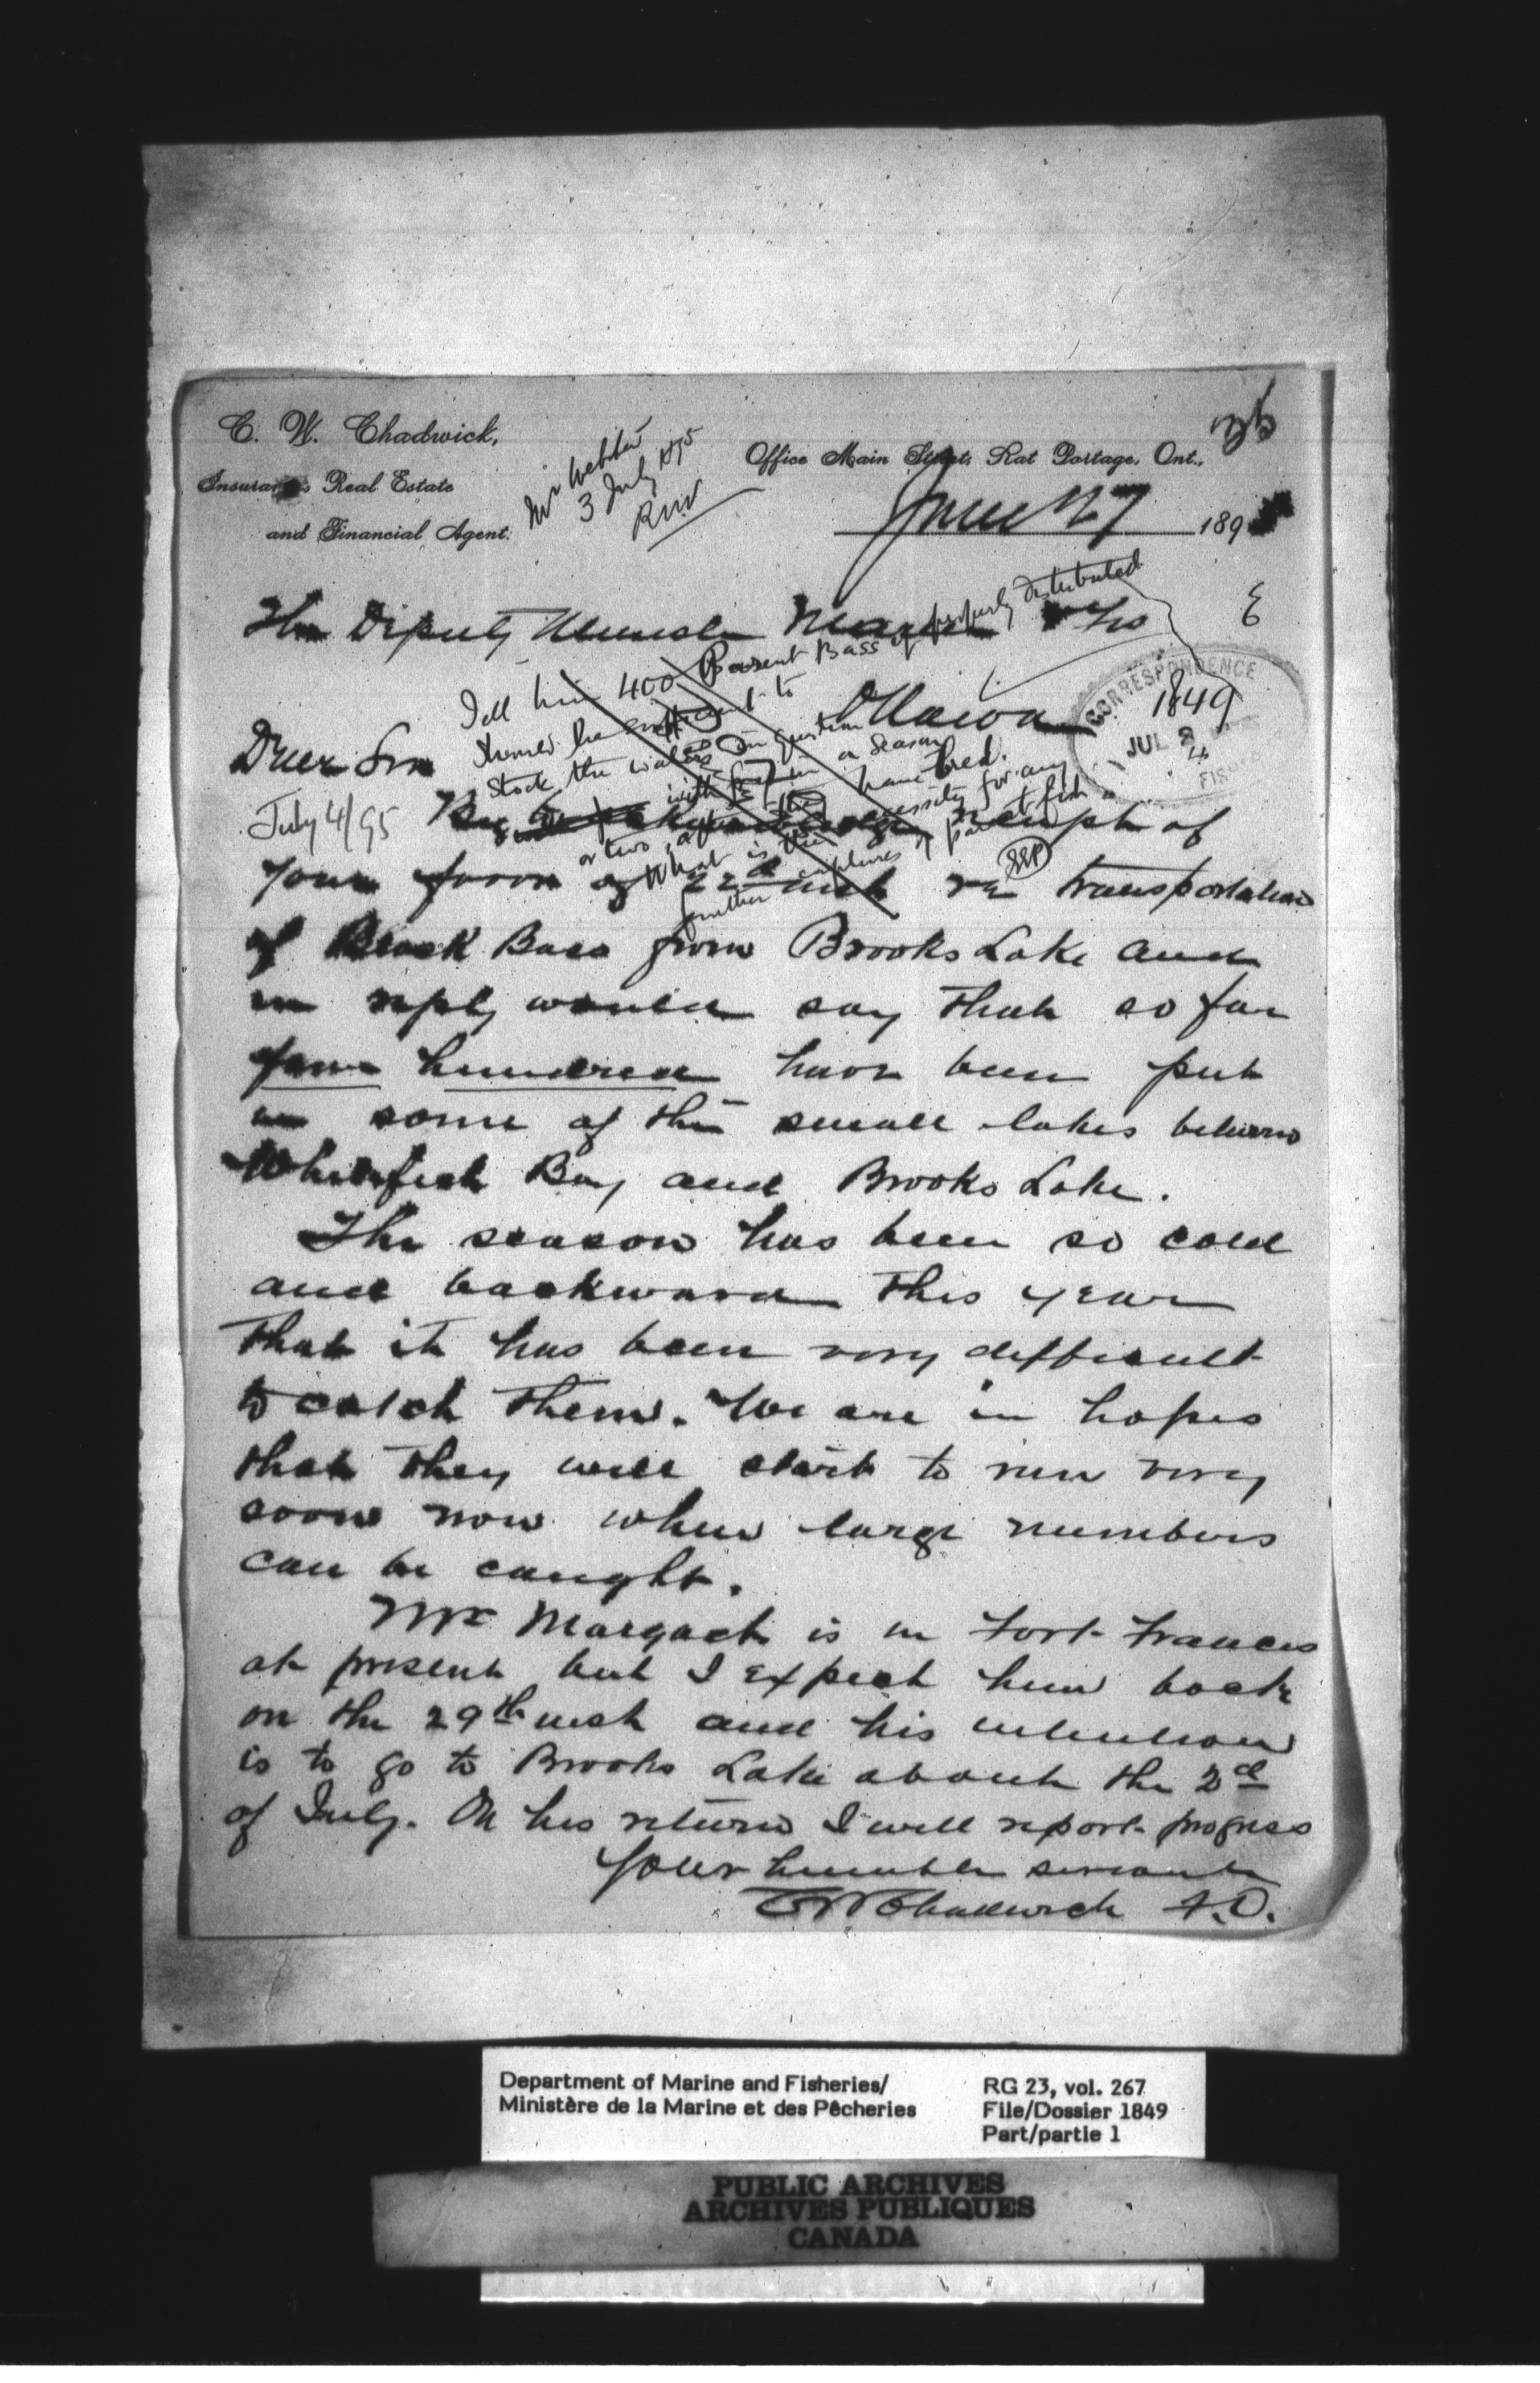 36
C. W. Chadwick,
Insurance Real Estate
and Financial Agent.
Mr Webster
3 July 1895
RNV
Office Main Street, Rat Portage, Ont.,
June 27 189
The Deputy Minister Marine & Fis
Ottawa
E
CORRESPONDENCE
1849
JUL 2
FISHE
Tell him 400 Parent Bass if properly distributed
should be sufficient to
stock the waters in question
with fry in a season
or two, after they have bred.
What is the necessity for any
further captures of parent fish
SSP
July 4/95
Deer Sir
Beg to acknowledge receipt of
your favor of 22d inst re transportation
of Black Bass from Brooks Lake and
in reply would say that so far
four hundred have been put
in some of the small lakes between
Whitefish Bay and Brooks Lake.
The season has been so cold
and backward this year
that it has been very difficult
to catch them. We are in hopes
that they will start to run very
soon now when large numbers
can be caught.
Mr Margach is in Fort Frances
at present but I expect him back
on the 29th inst and his intention
is to go to Brooks Lake about the 2d
of July. On his return I will report progress
Your humble servant
CW Chadwick F.O.
Department of Marine and Fisheries/
Ministère de la Marine et des Pêcheries
RG 23, vol. 267
File/Dossier 1849
Part/partie 1
PUBLIC ARCHIVES
ARCHIVES PUBLIQUES
CANADA